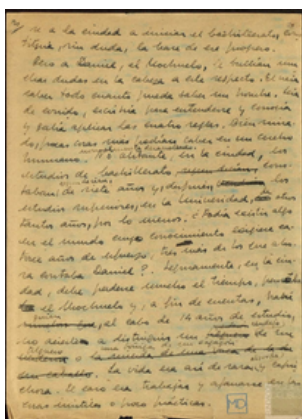 ir a la ciudad a iniciar el bachillerato, cons-
tituía, sin duda, la base de ese progreso.
Pero a Daniel, el Mochuelo, le bullían mu-
chas dudas en la cabeza a este respecto. Él creía
saber todo cuanto puede saber un hombre. Leía
de corrido, escribía para entenderse y conocía
y sabía aplicar las cuatro reglas. Bien mira-
do, pocas cosas más podían caber en un cerebro
humano. No obstante, en la ciudad, los
estudios de bachillerato cons-
taban de siete años y, después, los
estudios superiores, en la Universidad, otros
tantos años, por lo menos. ¿Podía existir algo
en el mundo cuyo conocimiento exigiera ca-
torce años de esfuerzo, tres más de los que aho-
ra contaba Daniel? Seguramente, en la ciu-
dad, debe perderse mucho el tiempo,
el Mochuelo y, a fin de cuentas, habrá
quien, al cabo de 14 años de estudio,
no acierte a distinguir un de un
jilguero
o
La vida era así de rara, y capri-
chosa. El caso era trabajar y afanarse en las
cosas inútiles o poco prácticas.
MD